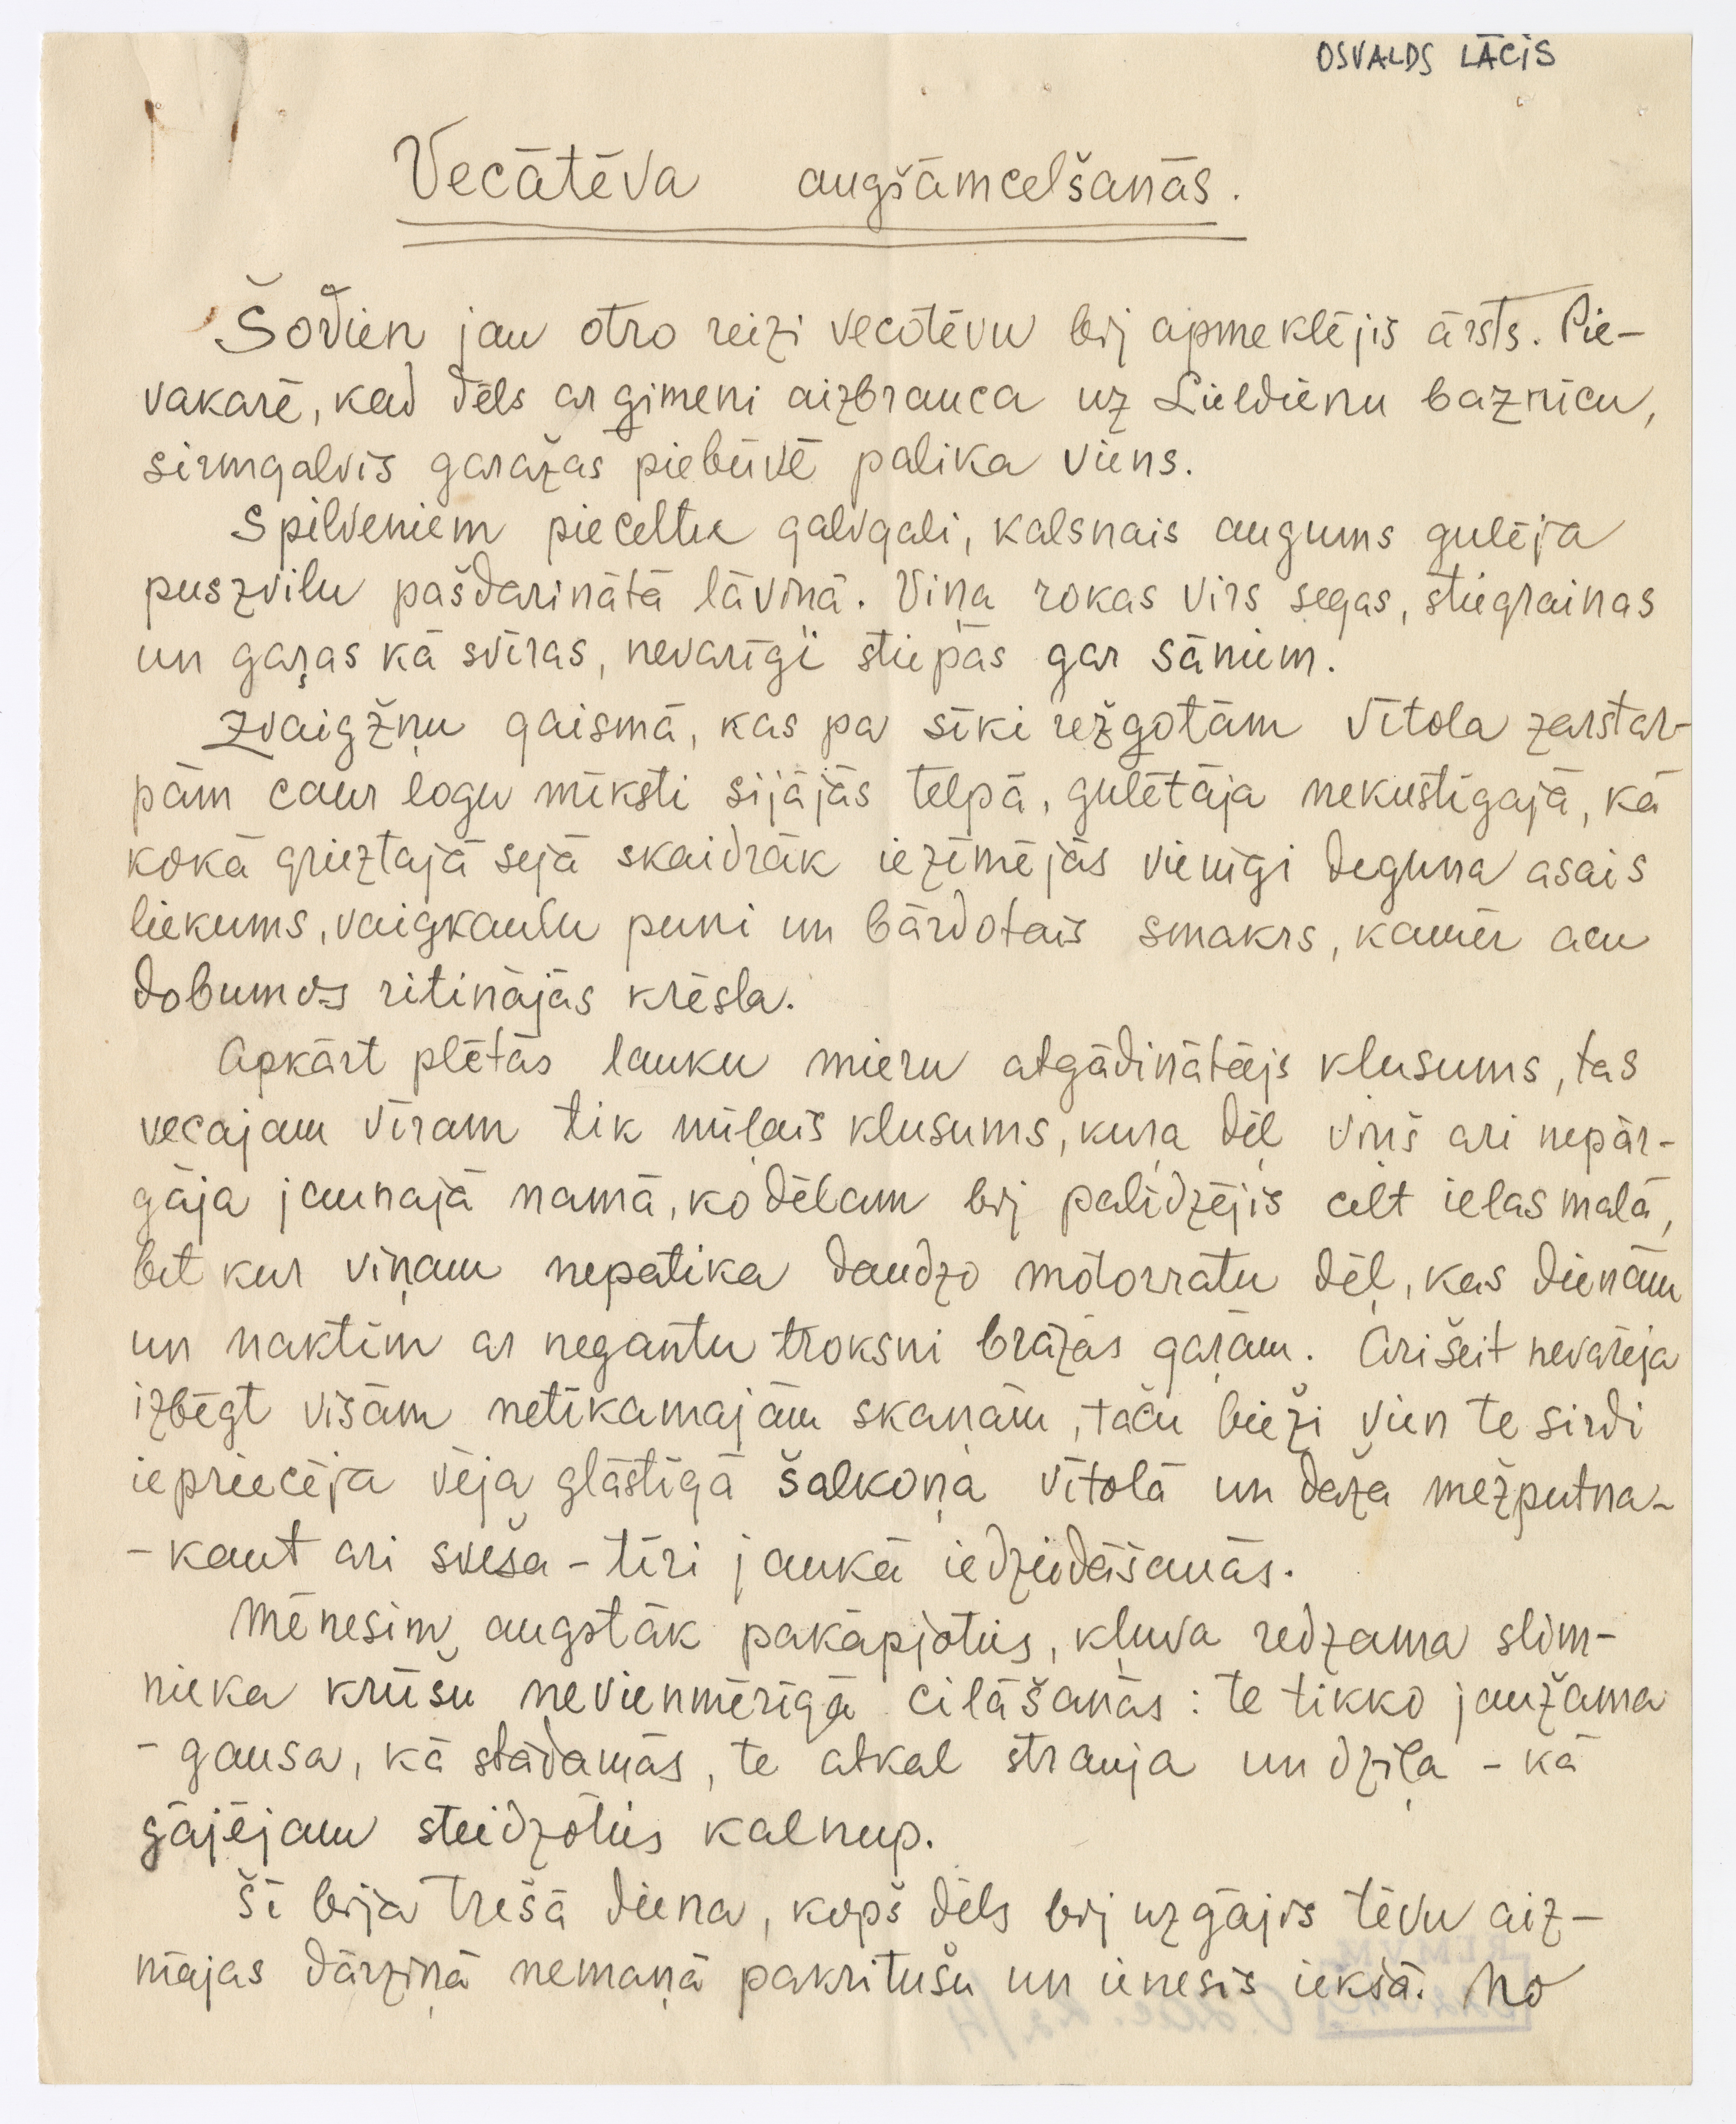 OSVALDS LĀCIS
Vecātēva augšāmcelšanās.
Šodien jau otro reizi vecotēvu bij apmeklējis ārsts. Pie-
vakarē, kad dēls ar ģimeni aizbrauca uz Lieldienu baznīcu,
sirmgalvis garažas piebūvē palika viens.
Spilveniem pieceltu galvgali, kalsnais augums gulēja
puszvilu pašdarinātā lāviņā. Viņa rokas virs segas, stiegrainas
un gaŗas kā svīras, nevarīgi stiepās gar sāniem.
Zvaigžņu gaismā, kas pa sīki režgotām vītola zarstar-
pām caur logu mīksti sijājās telpā, gulētāja nekustīgajā, kā
kokā grieztajā sejā skaidrāk iezīmējās vienīgi deguna asais
liekums, vaigkaulu puni un bārdotais smakrs, kamēr acu
dobumos ritinājās krēsla.
Apkārt plētās lauku mieru atgādinātājs klusums, tas
vecajam vīram tik mīļais klusums, kuŗa dēļ viņš ari nepār-
gāja jaunajā namā, ko dēlam bij palīdzējis celt ielas malā,
bet kur viņam nepatika daudzo motorratu dēļ, kas dienām
un naktīm ar negantu troksni brāzās gaŗām. Ari šeit nevarēja
izbēgt visām netīkamajām skaņām, taču bieži vien te sirdi
iepriecēja vēja glāstīgā šalkoņa vītolā un daža mežputna-
- kaut ari sveša - tīri jaukā iedziedāšanās.
Mēnesim augstāk pakāpjoties, kļuva redzama slim-
nieka krūšu nevienmērīgā cilāšanās: te tikko jaužama
- gausa, kā stādamās, te atkal strauja un dziļa - kā
gājējam steidzoties kalnup.
Šī bija trešā diena, kopš dēls bij uzgājis tēvu aiz-
mājas dārziņā nemaņā pakritušu un ienesis iekšā. No